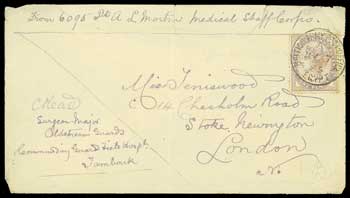 From 6095 Pte A L Martin Medical Staff Corps.
Miss Teniswood
C 14 Chesholm Road
Stoke Newington
London
N.
C Read
Surgeon Major
Coldstream Guards
Commanding Guards Field Hospl
Tambouk